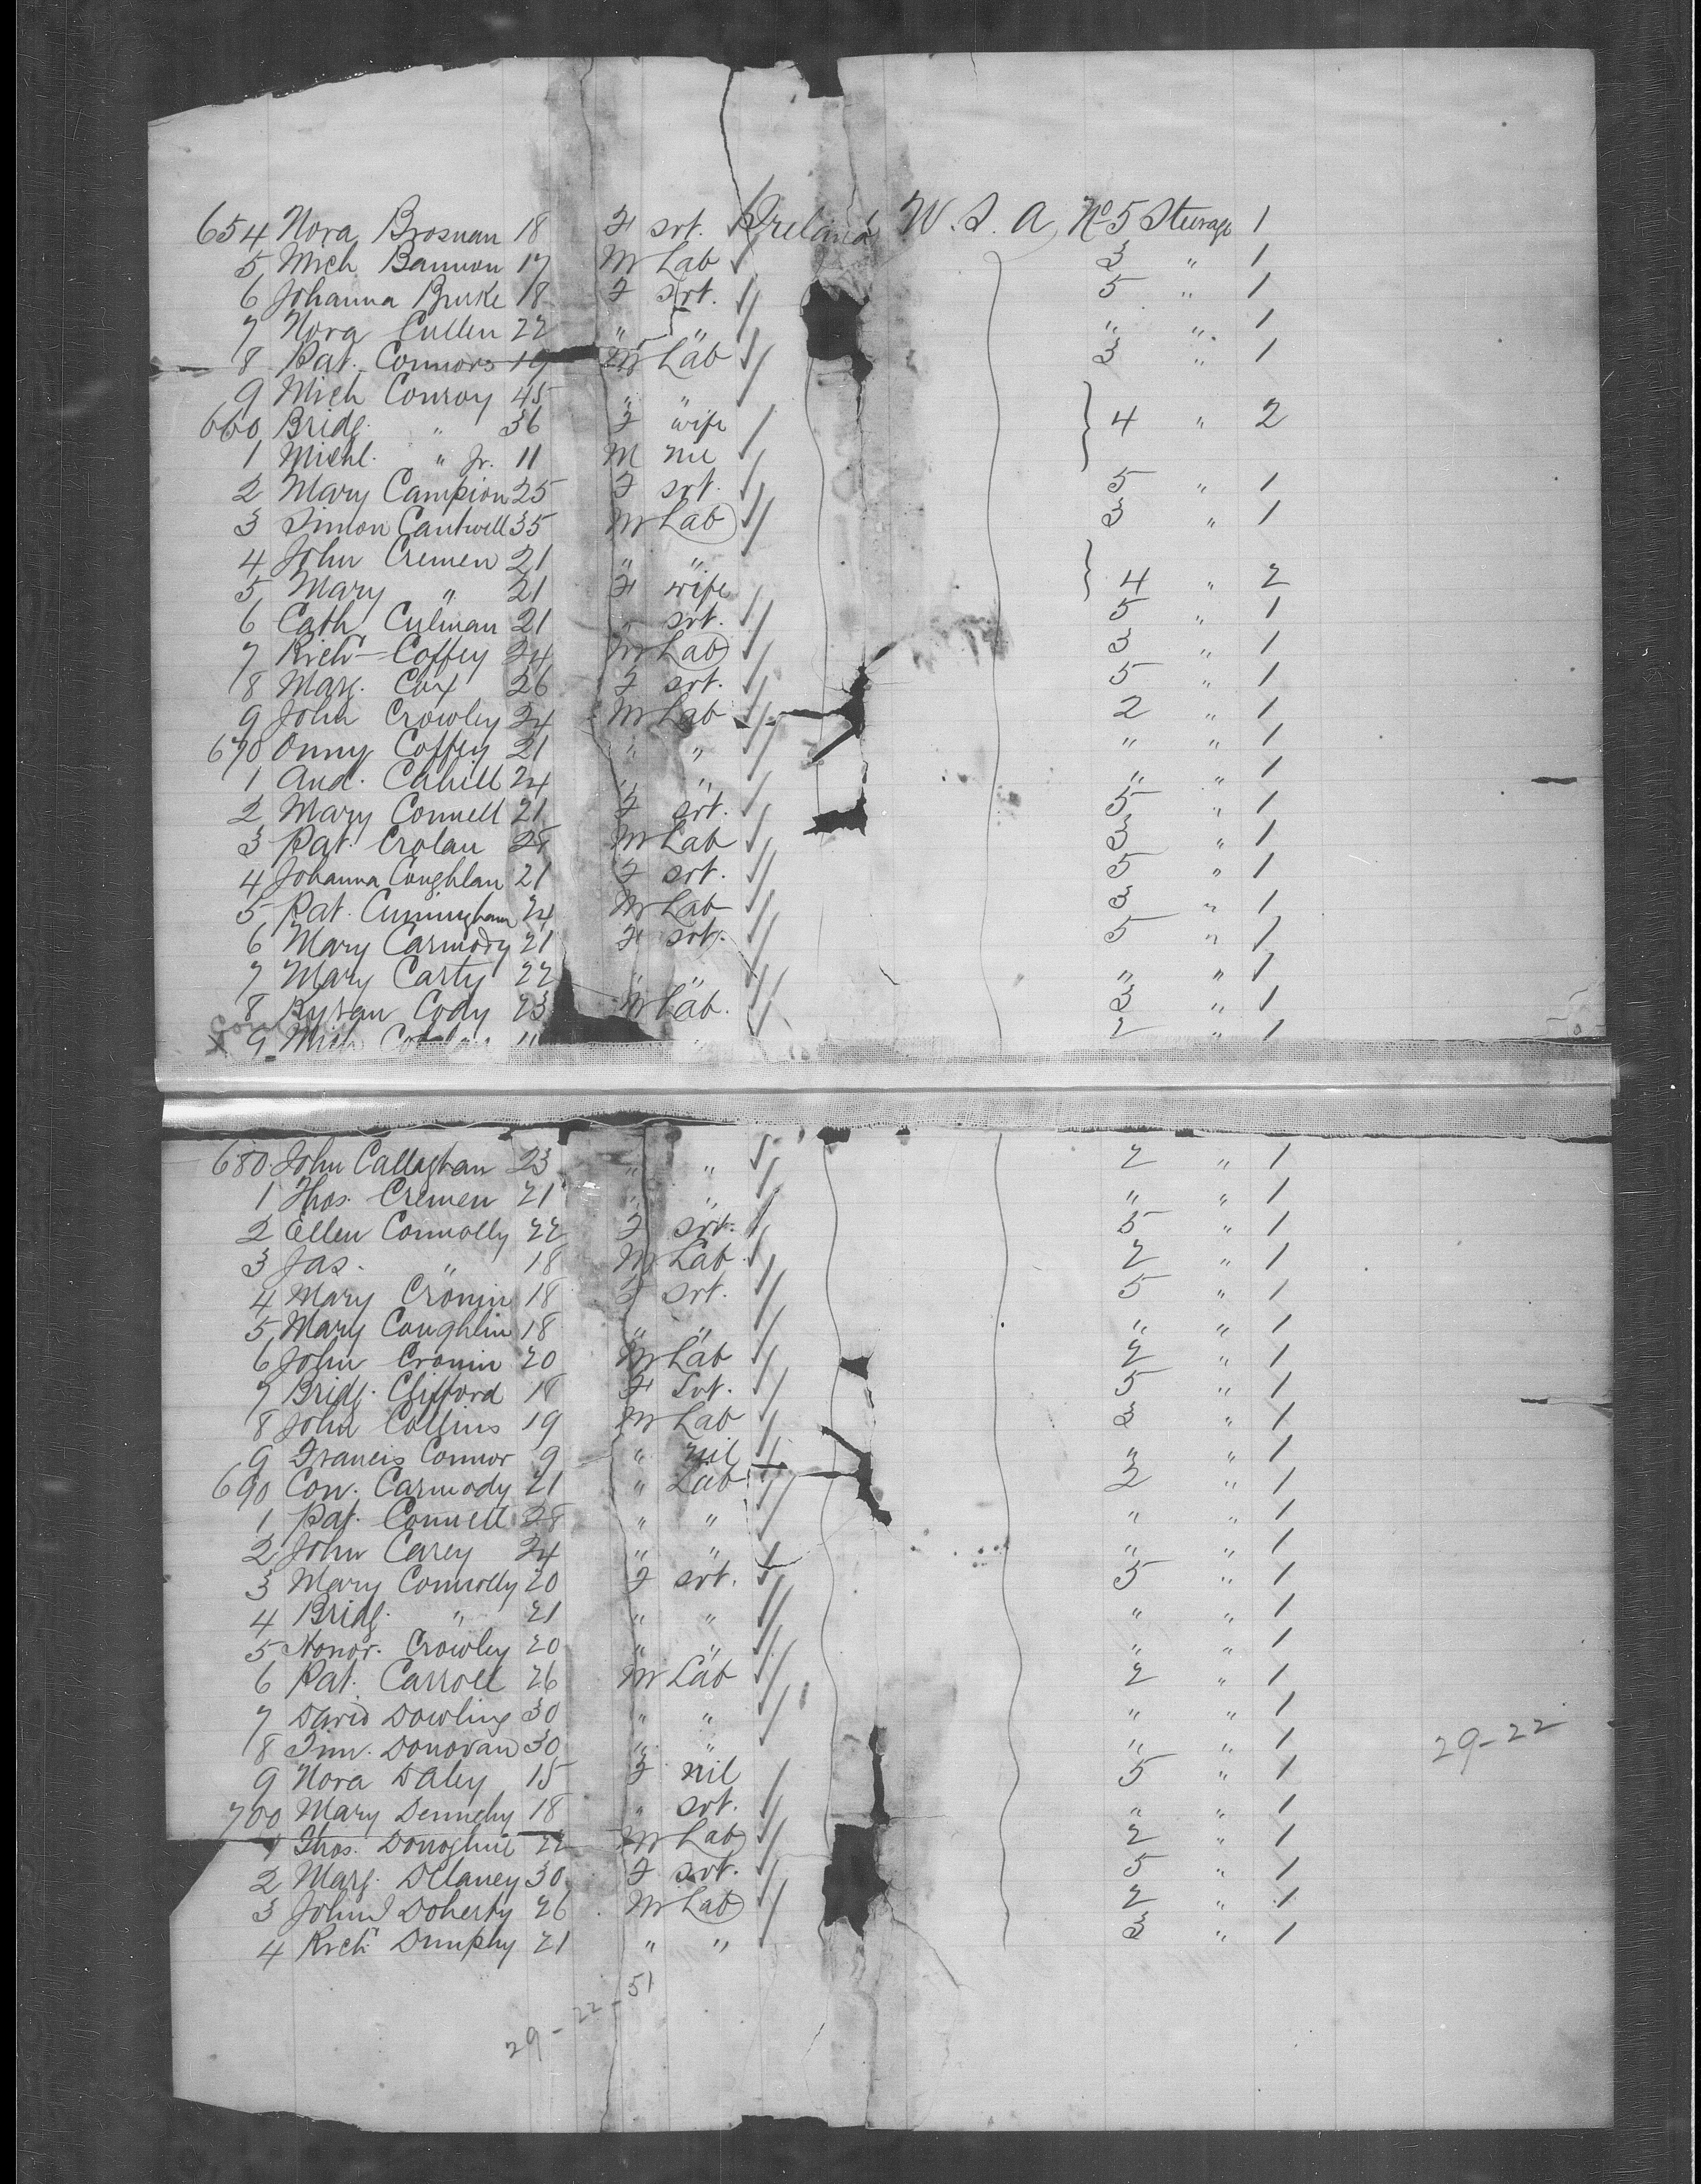 654 Nora Brosnan 18 F srt. Ireland U.S.A No 5 Steerage 1
5 Mich Bannon 17 M Lab 3 " 1
6 Johanna Burke 18 F srt. 5 " 1
7 Nora Cullen 22 " " " " 1
8 Pat. Connors 19 M Lab 3 " 1
9 Mich Conroy 45 " "
660 Bridg. " 36 F wife } 4 " 2
1 Michl. " Jr. 11 M nil
2 Mary Campion 25 F srt. 5 " 1
3 Simon Cantwell 35 M Lab 3 " 1
4 John Cremen 21 " "
5 Mary " 21 F wife } 4 " 2
6 Cath Culman 21 " srt. 5 " 1
7 Richd Coffey 24 M Lab 3 " 1
8 Marg. Cox 26 F srt. 5 " 1
9 John Crowley 24 M Lab 2 " 1
670 Onny Coffey 21 " " " " 1
1 And. Cahill 24 " " " " 1
2 Mary Connell 21 F srt. 5 " 1
3 Pat. Crolan 25 M Lab 3 " 1
4 Johanna Coughlan 21 F srt. 5 " 1
5 Pat. Cuningham 24 M Lab 3 " 1
6 Mary Carmody 21 F srt. 5 " 1
7 Mary Carty 22 " " " " 1
8 Kyran Cody 23 M Lab. 3 " 1
9 Mich 2 " 1
680 John Callaghan 23 " " 2 " 1
1 Thos. Cremen 21 " " " " 1
2 Ellen Connolly 22 F srt. 5 " 1
3 Jas. " 18 M Lab 2 " 1
4 Mary Cronin 18 F srt. 5 " 1
5 Mary Coughlin 18 " " " " 1
6 John Cronin 20 M Lab 2 " 1
7 Bridg. Clifford 18 F Svt. 5 " 1
8 John Collins 19 M Lab 3 " 1
9 Francis Connor 9 " nil " " 1
690 Con. Carmody 21 " Lab 2 " 1
1 Pat. Connell 28 " " " " 1
2 John Carey 24 " " " " 1
3 Mary Connolly 20 F srt. 5 " 1
4 Bridg. " 21 " " " " 1
5 Honor. Crowley 20 " " " " 1
6 Pat. Carroll 26 M Lab 2 " 1
7 David Dowling 30 " " " " 1
8 Tim. Donovan 30 " " " " 1 29-22
9 Nora Daley 15 F nil 5 " 1
700 Mary Dennehy 18 " srt. " " 1
1 Thos. Donoghue 22 M Lab 2 " 1
2 Marg. Delaney 30 F srt. 5 " 1
3 John Doherty 26 M Lab 2 " 1
4 Richd Dunphy 21 " " 3 " 1
29-22-51